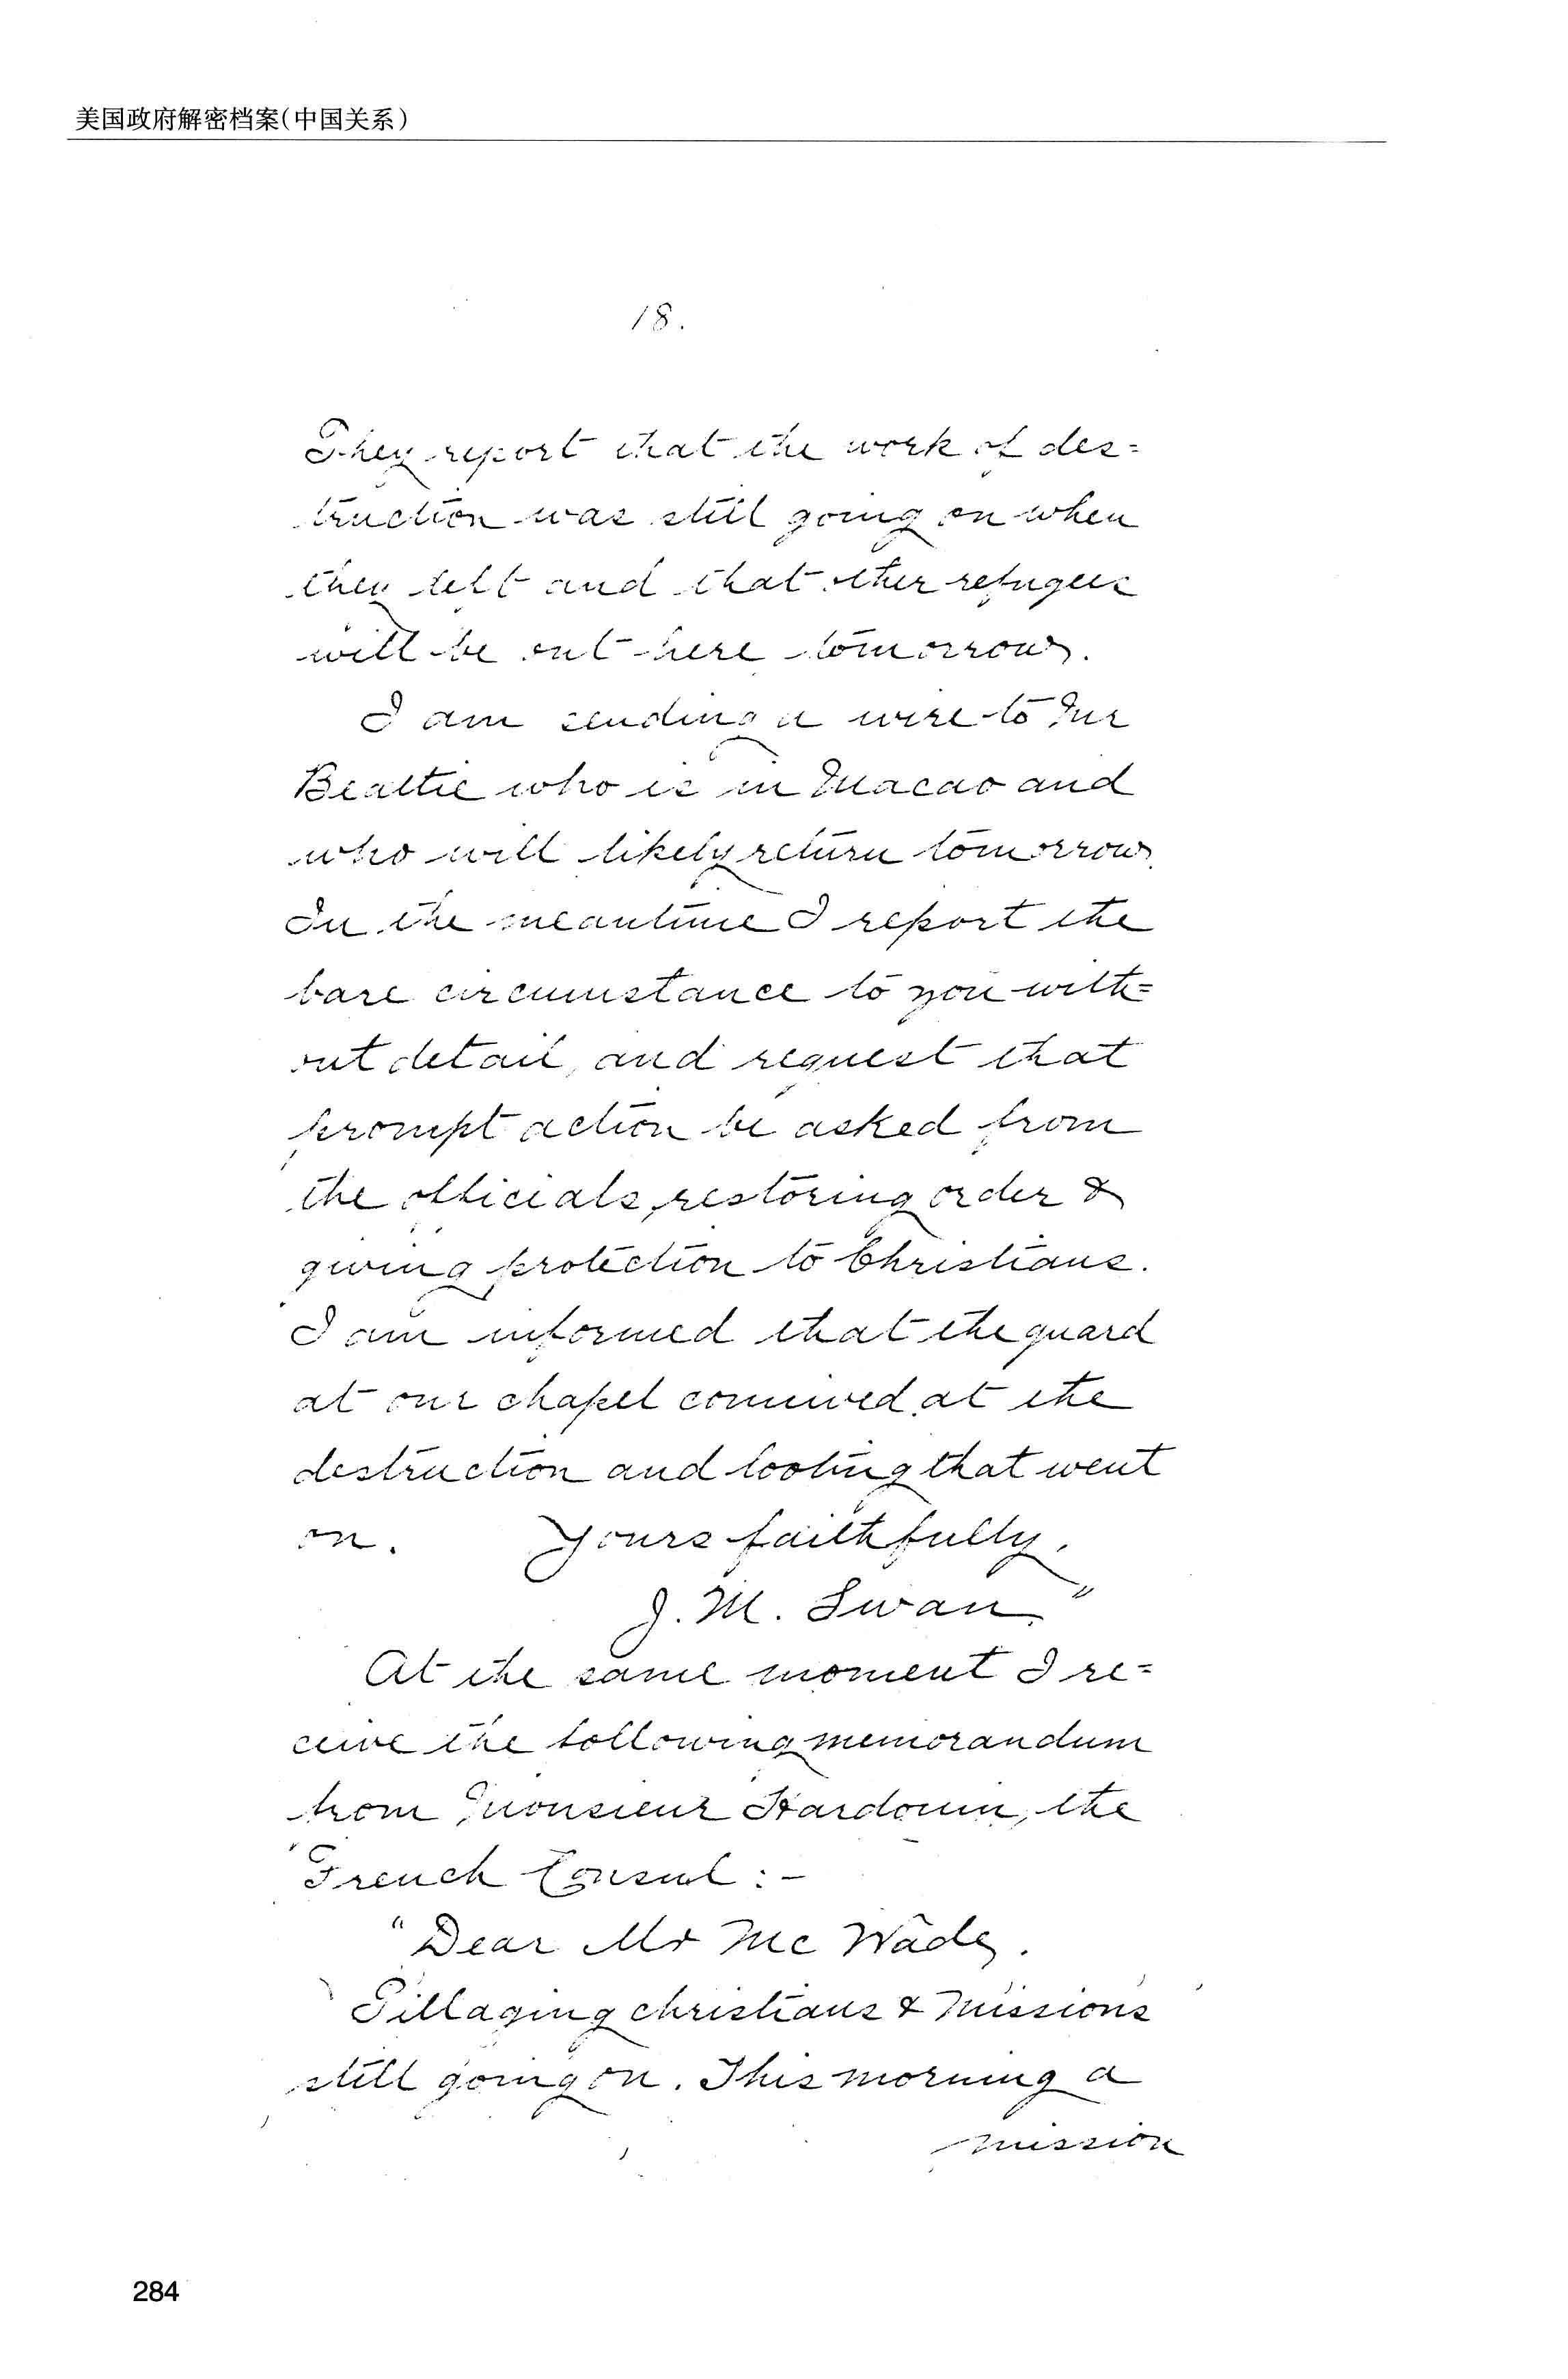 美国政府解密档案(中国关系)
18.
They report that the work of des=
truction was still going on when
they left and that other refugees
will be out here tomorrow.
I am sending a wire to Mr
Beattie who is in Macao and
who will likely return tomorrow.
In the meantime I report the
bare circumstance to you with=
out detail, and request that
prompt action be asked from
the officials, restoring order &
giving protection to Christians.
I am informed that the guard
at our chapel connived at the
destruction and looting that went
on. Yours faithfully,
J. M. Swan."
At the same moment I re=
ceive the following memorandum
from Monsieur Hardouin, the
French Consul : –
"Dear Mr Mc Wade,
Pillaging christians & missions
still going on. This morning a
mission
284